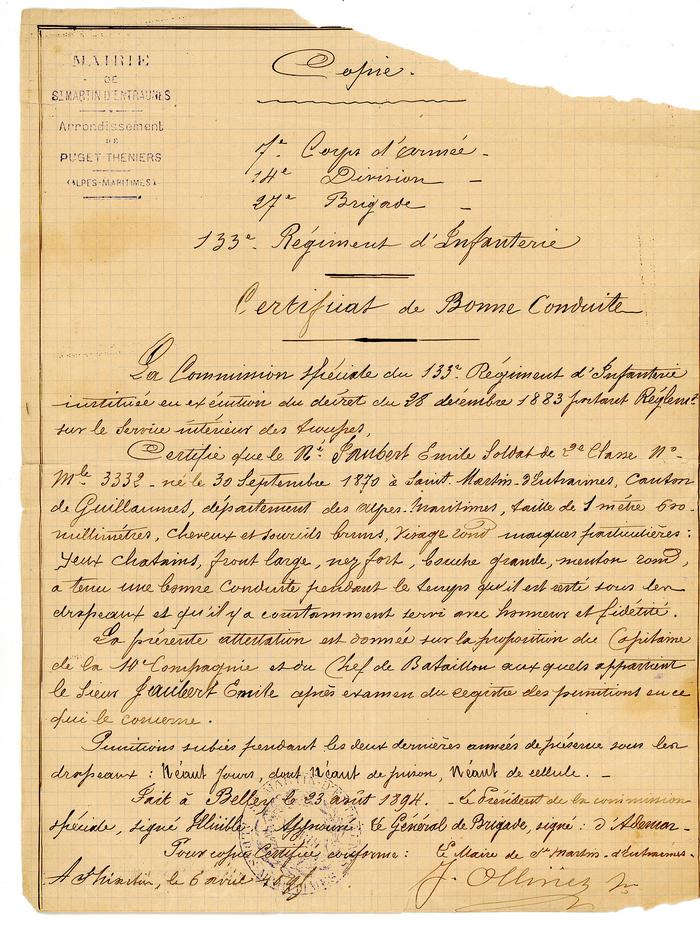 MAIRIE
DE
ST MARTIN D'ENTRAUNES
Arrondissement
DE
PUGET-THENIERS
(ALPES-MARITIMES)
Copie.
7e Corps d'armée -
14e Division -
27e Brigade -
133e Régiment d'Infanterie
Certificat de Bonne Conduite
La Commission spéciale du 133e Régiment d'Infanterie
instituée en exécution du décret du 28 décembre 1883 portant Règlemt
sur le service intérieur des troupes,
Certifie que le Né Jaubert Emile Soldat de 2e Classe No
Mle 3332 - né le 30 Septembre 1870 à Saint-Martin-d'Entraunes, Canton
de Guillaumes, département des Alpes-Maritimes, taille de 1 mètre 600
millimètres, cheveux et sourcils bruns, visage rond marques particulières :
yeux chatains, front large, nez fort, bouche grande, menton rond,
a tenu une bonne conduite pendant le temps qu'il est resté sous les
drapeaux et qu'il y a constamment servi avec honneur et fidélité.
La présente attestation est donnée sur la proposition du Capitaine
de la 10e Compagnie et du Chef de Bataillon auxquels appartient
le sieur Jaubert Emile après examen du registre des punitions en ce
qui le concerne.
Punitions subies pendant les deux dernières années de présence sous les
drapeaux : Néant jours, dont Néant de prison, Néant de cellule. -
Fait à Belley le 23 août 1894. - Le Président de la commission
spéciale, signé Illisible - Approuvé Le Général de Brigade, signé : d'Ademar -
Pour copie Certifiée conforme : Le Maire de St Martin-d'Entraunes.
A St Martin, le 6 avril
J. Ollivier